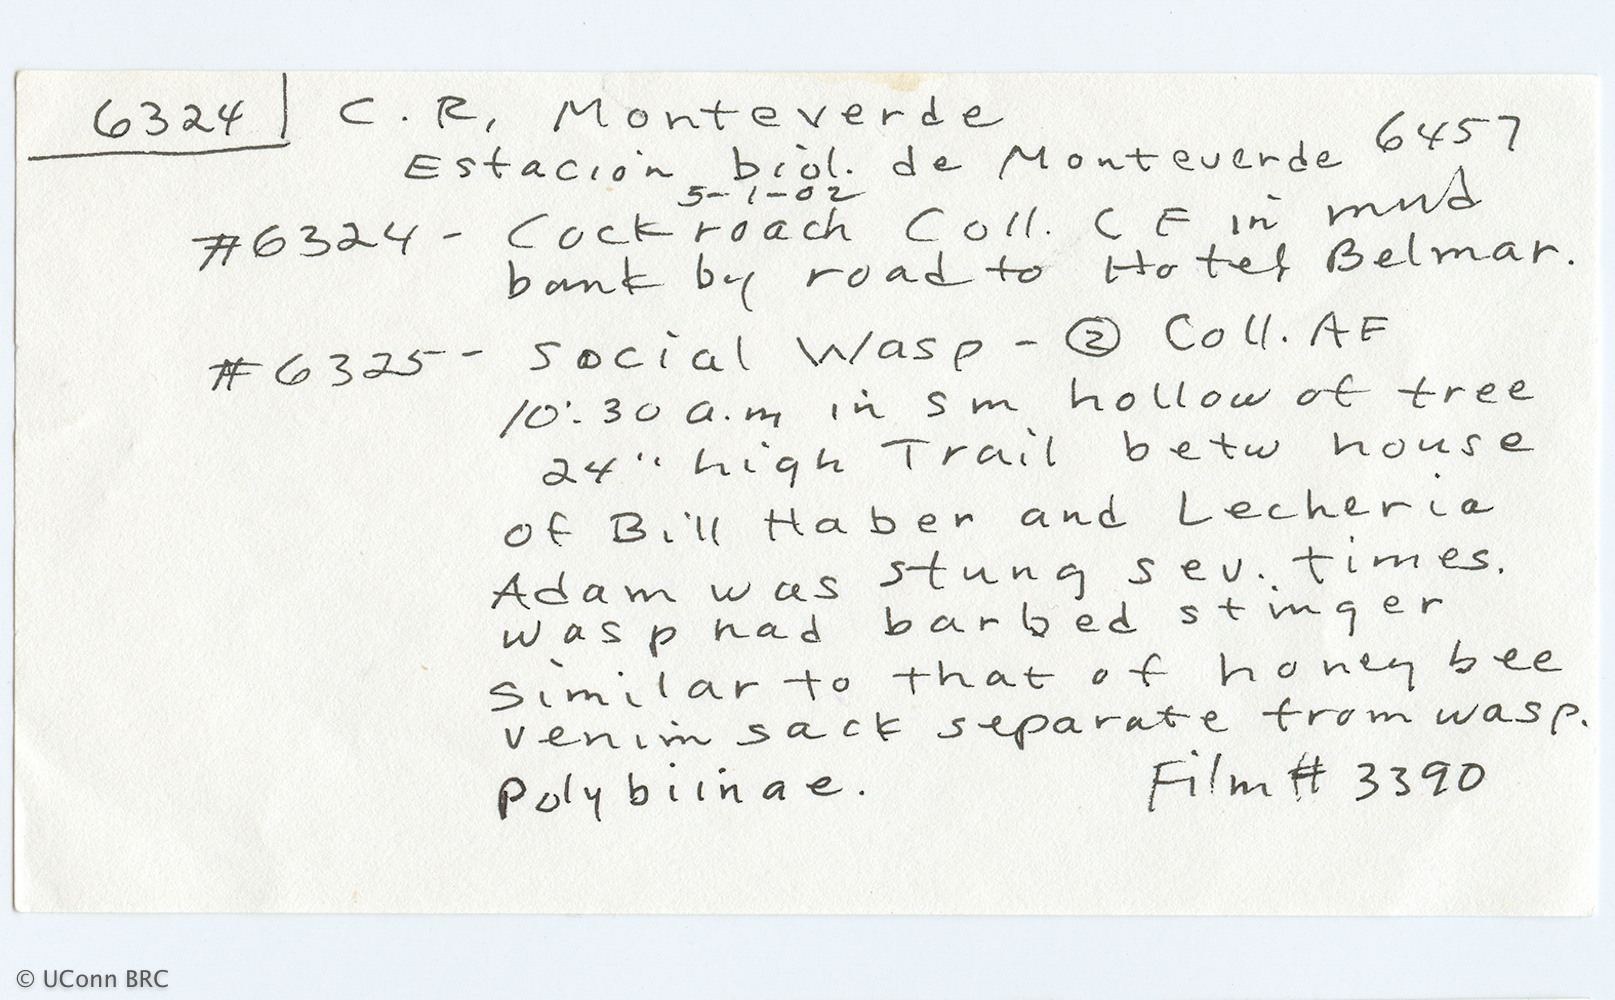 6324 C. R. Monteverde
Estación biol. de Monteverde 6457
5-1-02
#6324 - Cockroach Coll. CF in mud
bank by road to Hotel Belmar.
#6325 - Social Wasp - ② Coll. AF
10:30 a.m in sm hollow of tree
24" high Trail betw house
of Bill Haber and Lecheria
Adam was stung sev. times.
wasp had barbed stinger
similar to that of honey bee
venim sack separate from wasp.
Polybiinae. Film # 3390
© UConn BRC